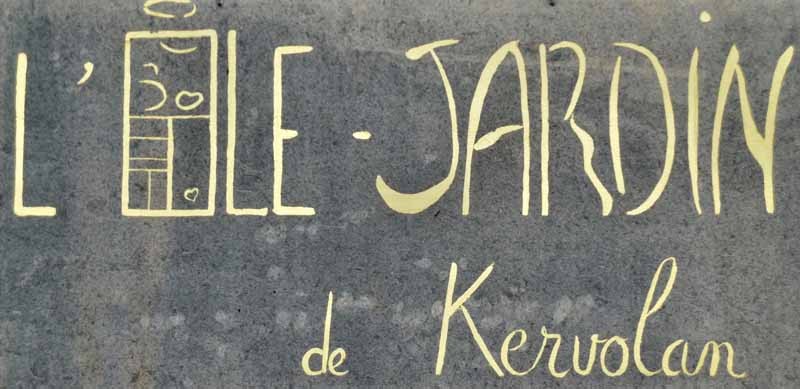 L'ÎLE-JARDiN
de Kervolan